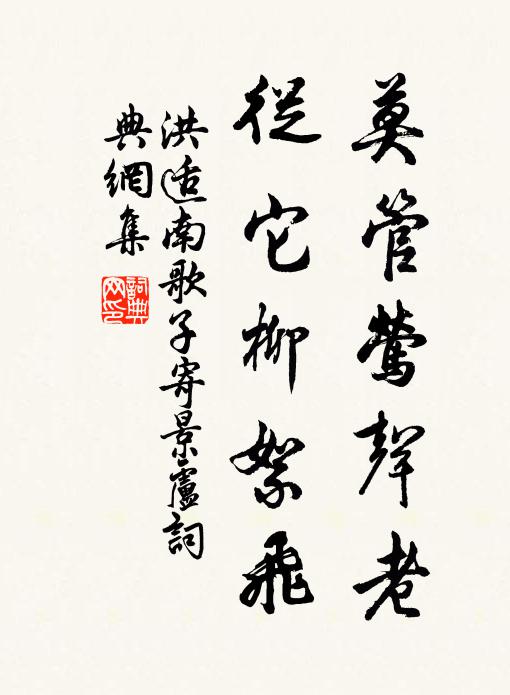 莫管鶯聲老
從它柳絮飛
洪适南歌子寄景廬詞
典網集
詞典
网印